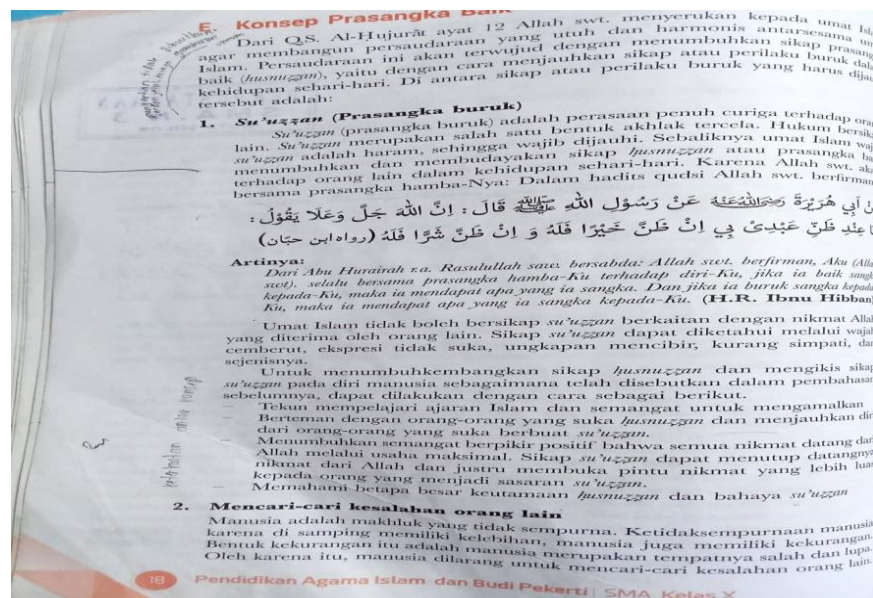 E. Konsep Prasangka Baik
Dari Q.S. Al-Hujurāt ayat 12 Allah swt. menyerukan kepada umat
agar membangun persaudaraan yang utuh dan harmonis antarsesama
Islam. Persaudaraan ini akan terwujud dengan menumbuhkan sikap
baik (husnuẓẓan), yaitu dengan cara menjauhkan sikap atau perilaku buruk
kehidupan sehari-hari. Di antara sikap atau perilaku buruk yang harus
tersebut adalah:
1. Su'uẓẓan (Prasangka buruk)
Su'uẓẓan (prasangka buruk) adalah perasaan penuh curiga terhadap
lain. Su'uẓẓan merupakan salah satu bentuk akhlak tercela. Hukum
su'uẓẓan adalah haram, sehingga wajib dijauhi. Sebaliknya umat Islam
menumbuhkan dan membudayakan sikap ḥusnuẓẓan atau prasangka
terhadap orang lain dalam kehidupan sehari-hari. Karena Allah swt.
bersama prasangka hamba-Nya: Dalam hadits qudsi Allah swt. berfirman
أَبِي هُرَيْرَةَ رَضِيَ اللهُ عَنْهُ عَنْ رَسُوْلِ اللهِ ﷺ قَالَ : إِنَّ اللهَ جَلَّ وَعَلَا يَقُوْلُ :
عِنْدَ ظَنِّ عَبْدِىْ بِي اِنْ ظَنَّ خَيْرًا فَلَهُ وَ اِنْ ظَنَّ شَرًّا فَلَهُ (رواه ابن حبّان)
Artinya:
Dari Abu Hurairah r.a. Rasulullah saw. bersabda: Allah swt. berfirman, Aku
swt). selalu bersama prasangka hamba-Ku terhadap diri-Ku, jika ia baik
kepada-Ku, maka ia mendapat apa yang ia sangka. Dan jika ia buruk sangka kepada
Ku, maka ia mendapat apa yang ia sangka kepada-Ku. (H.R. Ibnu Hibban)
Umat Islam tidak boleh bersikap su'uẓẓan berkaitan dengan nikmat Allah
yang diterima oleh orang lain. Sikap su'uẓẓan dapat diketahui melalui wajah
cemberut, ekspresi tidak suka, ungkapan mencibir, kurang simpati, dan
sejenisnya.
Untuk menumbuhkembangkan sikap ḥusnuẓẓan dan mengikis sikap
su'uẓẓan pada diri manusia sebagaimana telah disebutkan dalam pembahasan
sebelumnya, dapat dilakukan dengan cara sebagai berikut.
Tekun mempelajari ajaran Islam dan semangat untuk mengamalkan
Berteman dengan orang-orang yang suka ḥusnuẓẓan dan menjauhkan
dari orang-orang yang suka berbuat su'uẓẓan.
Menumbuhkan semangat berpikir positif bahwa semua nikmat datang
Allah melalui usaha maksimal. Sikap su'uẓẓan dapat menutup datangnya
nikmat dari Allah dan justru membuka pintu nikmat yang lebih
kepada orang yang menjadi sasaran su'uẓẓan.
Memahami betapa besar keutamaan ḥusnuẓẓan dan bahaya su'uẓẓan
2. Mencari-cari kesalahan orang lain
Manusia adalah makhluk yang tidak sempurna. Ketidaksempurnaan manusia
karena di samping memiliki kelebihan, manusia juga memiliki kekurangan.
Bentuk kekurangan itu adalah manusia merupakan tempatnya salah dan lupa.
Oleh karena itu, manusia dilarang untuk mencari-cari kesalahan orang lain.
18 Pendidikan Agama Islam dan Budi Pekerti | SMA Kelas X